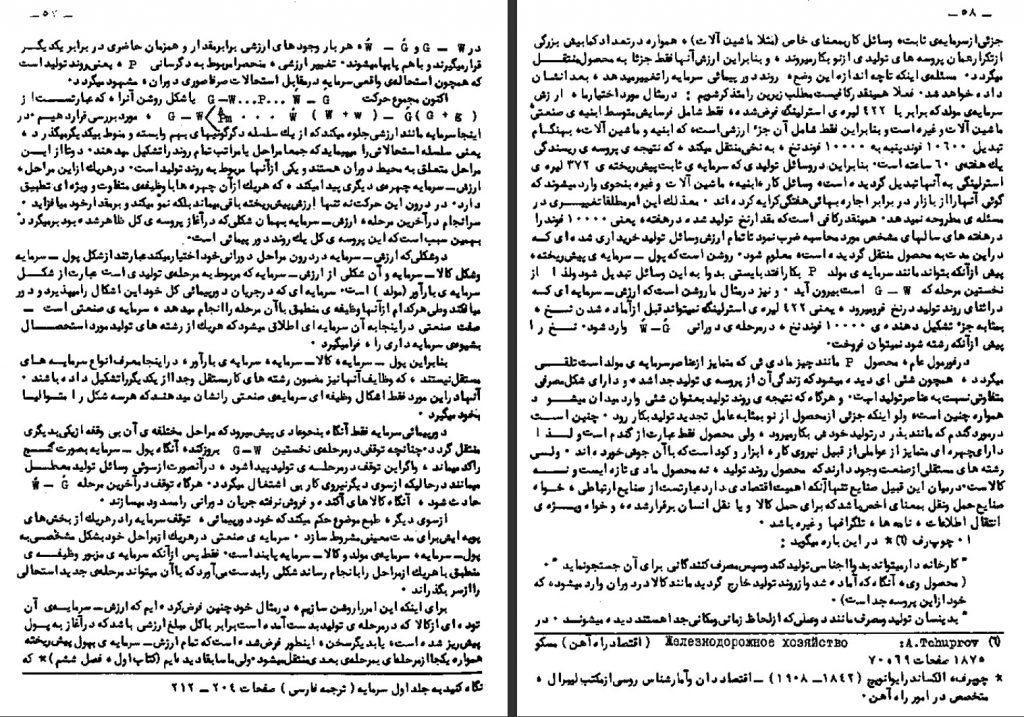 ــ ۵۷ ــ
در G – W و Ẃ – Ǵ، هر بار وجودهای ارزشی برابر مقدار و همزمان حاضری در برابر یکدیگر
قرار میگیرند و باهم پابپا میشوند. تغییر ارزشی، منحصراً مربوط به دگرسانی P، یعنی روند تولید است
که همچون استحاله‌ی واقعی سرمایه در مقابل استحالات صرفاً صوری دوران، مشهود میگردد.
اکنون مجموع حرکت G – W...P... Ẃ – Ǵ یا شکل روشن آنرا، که عبارتست از
G – W< A Pm ... Ẃ (W + w) – Ǵ (G + g) مورد بررسی قرار دهیم. در
اینجا سرمایه مانند ارزشی جلوه میکند که از یک سلسله دگرگونیهای بهم وابسته و منوط بیکدیگر میگذرد،
یعنی سلسله استحالاتی را میپیماید که جمعاً مراحل یا مراتب تمام روند را تشکیل میدهند. دوتا از این
مراحل متعلق به محیط دوران هستند و یکی از آنها مربوط به روند تولید است. در هریک از این مراحل،
ارزش ــ سرمایه چهره‌ی دیگری پیدا میکند، که هریک از آن چهره‌ها با وظیفه‌ی متفاوت و ویژه‌ای تطبیق
دارد. در درون این حرکت نه تنها ارزش پیش ریخته باقی میماند بلکه نمو میکند و بر مقدار خود میافزاید.
سرانجام در آخرین مرحله، ارزش ــ سرمایه بهمان شکلی که در آغاز پروسه‌ی کل ظاهر شده بود برمیگردد.
بهمین سبب است که این پروسه‌ی کل یک روند دورپیمائی است.
دو شکلی که ارزش ــ سرمایه در درون مراحل دورانی خود اختیار میکند عبارتند از شکل پول ــ سرمایه
و شکل کالا ــ سرمایه و آن شکلی از ارزش ــ سرمایه که مربوط به مرحله‌ی تولیدی است عبارت از شکل
سرمایه‌ی بارآور (مولد) است. سرمایه‌ای که در جریان دورپیمائی کل خود این اشکال را میپذیرد و دور
میافکند و طی هرکدام از آنها وظیفه‌ی منطبق با آن مرحله را انجام میدهد، سرمایه‌ی صنعتی است ــ
صفت صنعتی در اینجا به آن سرمایه‌ای اطلاق میشود که هریک از رشته‌های تولید مورد استحصال
بشیوه‌ی سرمایه داری را، فرا میگیرد.
بنابراین پول ــ سرمایه، کالا ــ سرمایه، سرمایه‌ی بارآور، در اینجا معرف انواع سرمایه‌های
مستقل نیستند، که وظایف آنها نیز مضمون رشته‌های کار مستقل و جدا از یکدیگر را تشکیل داده باشند.
آنها در این مورد فقط اشکال وظیفه‌ای سرمایه‌ی صنعتی را نشان میدهند که هر سه شکل را متوالیا
بخود میگیرد.
دورپیمائی سرمایه فقط آنگاه بنحو عادی پیش میرود که مراحل مختلفه‌ی آن بی وقفه از یکی بدیگری
منتقل گردد. چنانچه توقفی در مرحله‌ی نخستین G–W بروز کند، آنگاه پول ــ سرمایه بصورت گنج
راکد میماند، و اگر این توقف در مرحله‌ی تولید پیدا شود، در آنصورت از سوئی وسائل تولید معطل
میمانند در حالیکه از سوی دیگر نیروی کار بی اشتغال میگردد. هرگاه توقف در آخرین مرحله Ẃ – Ǵ
حادث شود، آنگاه کالاهای آکنده و فروش نرفته جریان دورانی را مسدود میسازند.
از سوی دیگر، طبع موضوع حکم میکند که خود دورپیمائی، توقف سرمایه را در هریک از بخش‌های
پویه‌ایش برای مدت معینی مشروط سازد. سرمایه‌ی صنعتی در هریک از مراحل خود بشکل مشخصی به
پول ــ سرمایه، سرمایه‌ی مولد و کالا ــ سرمایه پابند است. فقط پس از آنکه سرمایه‌ی مزبور وظیفه‌ی
منطبق با هریک از مراحل را بانجام رساند شکلی را بدست می‌آورد که با آن میتواند مرحله‌ی جدید استحالی
را از سر بگذراند.
برای اینکه این امر را روشن سازیم، در مثال خود چنین فرض کرده‌ایم که ارزش ــ سرمایه‌ی آن
توده‌ای از کالا که در مرحله‌ی تولید بدست آمده است برابر با کل مبلغ ارزشی باشد که در آغاز به پول
پیش‌ریز شده است، یا بدیگر سخن، اینطور فرض شده است که تمام ارزش ــ سرمایه‌ی بپول پیش ریخته
همواره یکجا از مرحله‌ای بمرحله‌ی بعدی منتقل میشود. ولی ما سابقاً دیده‌ایم (کتاب اول، فصل ششم)* که
نگاه کنید به جلد اول سرمایه (ترجمه فارسی) صفحات ۲۰۴ ــ ۲۱۲
ــ ۵۸ ــ
جزئی از سرمایه‌ی ثابت، وسائل کار بمعنای خاص (مثلا ماشین آلات)، همواره در تعداد کمابیش بزرگی
از تکرار همان پروسه‌های تولیدی از نو بکار میروند، و بنابراین ارزش آنها فقط جزئا به محصول منتقل
میگردد. مسئله‌ی اینکه تا چه اندازه این وضع، روند دورپیمائی سرمایه را تغییر میدهد، بعد انشان
داده خواهد شد. فعلا همینقدر کافیست مطلب زیرین را متذکر شویم: در مثال مورد اختیار ما، ارزش
سرمایه‌ی مولد که برابر با ۴۲۲ لیره‌ی استرلینگ فرض شده، فقط شامل فرسایش متوسط ابنیه‌ی صنعتی
ماشین آلات و غیره است و بنابراین فقط شامل آن جزء ارزشی است، که ابنیه و ماشین آلات، بهنگام
تبدیل ۱۰۶۰۰ فوند پنبه به ۱۰۰۰۰ فوند نخ، به نخی منتقل میکند، که نتیجه‌ی پروسه‌ی ریسندگی
یک هفته‌ی ۶۰ ساعته است. بنابراین در وسائل تولیدی که سرمایه‌ی ثابت پیش ریخته‌ی ۳۷۲ لیره‌ی
استرلینگی به آنها تبدیل گردیده است، وسائل کار، ابنیه، ماشین آلات و غیره بنحوی وارد میشوند که
گوئی آنها را از بازار در برابر اجاره بهائی هفتگی کرایه کرده‌اند. معذلک این امر مطلقا تغییری در
مسئله‌ی مطروحه نمیدهد. همینقدر کافی است که مقدار نخ تولید شده در هفته، یعنی ۱۰۰۰۰ فوند را
در هفته‌های سالهای مشخص مورد محاسبه ضرب نمود تا تمام ارزش وسائل تولید خریداری شده‌ای که
در این مدت به محصول منتقل گردیده است، معلوم شود. روشن است که پول ــ سرمایه‌ی پیش ریخته،
پیش از آنکه بتواند مانند سرمایه‌ی مولد P بکار افتد بایستی بدوا به این وسائل تبدیل شود ولذا از
نخستین مرحله که G – W است بیرون آید. و نیز در مثال ما روشن است که ارزش ــ سرمایه‌ای که
در اثنای روند تولید در نخ فرو میرود، یعنی ۴۲۲ لیره‌ی استرلینگ، نمیتواند قبل از آماده شدن نخ،
بمثابه جزء تشکیل دهنده‌ی ۱۰۰۰۰ فوند نخ، در مرحله‌ی دورانی Ẃ–Ǵ وارد شود. نخ را
پیش از آنکه رشته شود نمیتوان فروخت.
در فورمول عام، محصول P مانند چیز مادی‌ئی که متمایز از عناصر سرمایه‌ی مولد است تلقی
میگردد، همچون شئی‌ای دیده میشود که زندگی آن از پروسه‌ی تولید جداشده و دارای شکل مصرفی
متفاوتی نسبت به عناصر تولید است. و هرگاه که نتیجه‌ی روند تولید بعنوان شئی وارد میدان میشود
همواره چنین است، ولو اینکه جزئی از محصول از نو بمثابه عامل تجدید تولید بکار رود. چنین است
در مورد گندم که مانند بذر در تولید خودش بکار میرود، ولی محصول فقط عبارت از گندم است و لذا
دارای چهره‌ای متمایز از عواملی از قبیل نیروی کار، ابزار و کود است که با آن جوش خورده‌اند. ولی
رشته‌های مستقلی از صنعت وجود دارند که محصول روند تولید، نه محصول مادی تازه ایست و نه
کالاست. در میان این قبیل صنایع تنها آنکه اهمیت اقتصادی دارد عبارتست از صنایع ارتباطی، خواه
صنایع حمل و نقل بمعنای اخص یا شد که برای حمل کالا و یا نقل انسان برقرار شده، و خواه ویژه‌ی
انتقال اطلاعات، نامه‌ها، تلگرافها و غیره باشد.
ا. چوپرف (۶)* در این باره میگوید:
"کارخانه دار میتواند بدوا اجناسی تولید کند و سپس مصرف کنندگانی برای آن جستجو نماید".
(محصول وی، آنگاه که آماده شد و از روند تولید خارج گردید مانند کالا در دوران وارد میشود، که
خود از این پروسه جداست)
"بدینسان تولید و مصرف مانند دو عملی که از لحاظ زمانی و مکانی جدا هستند دیده میشوند. در
(۶) A.Tchuprov: Железнодорожное хозяйство (اقتصاد راه آهن) مسکو
۱۸۷۵ صفحات ۶۹ و ۷۰
* چوپرف، الکساندر ایوانویچ (۱۸۴۲ــ ۱۹۰۸) ــ اقتصاد دان و آمارشناس روسی از مکتب لیبرال،
متخصص در امور راه آهن.